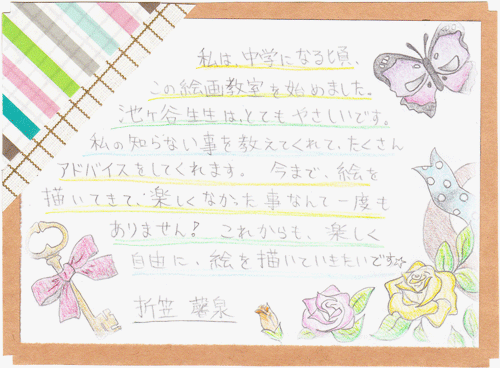 私は、中学になる頃、
この絵画教室を始めました。
池ヶ谷生生は、とてもやさしいです。
私の知らない事を教えてくれて、たくさん
アドバイスをしてくれます。 今まで、絵を
描いてきて、楽しくなかった事なんて一度も
ありません! これからも、楽しく
自由に、絵を描いていきたいです☆
折笠 馨泉